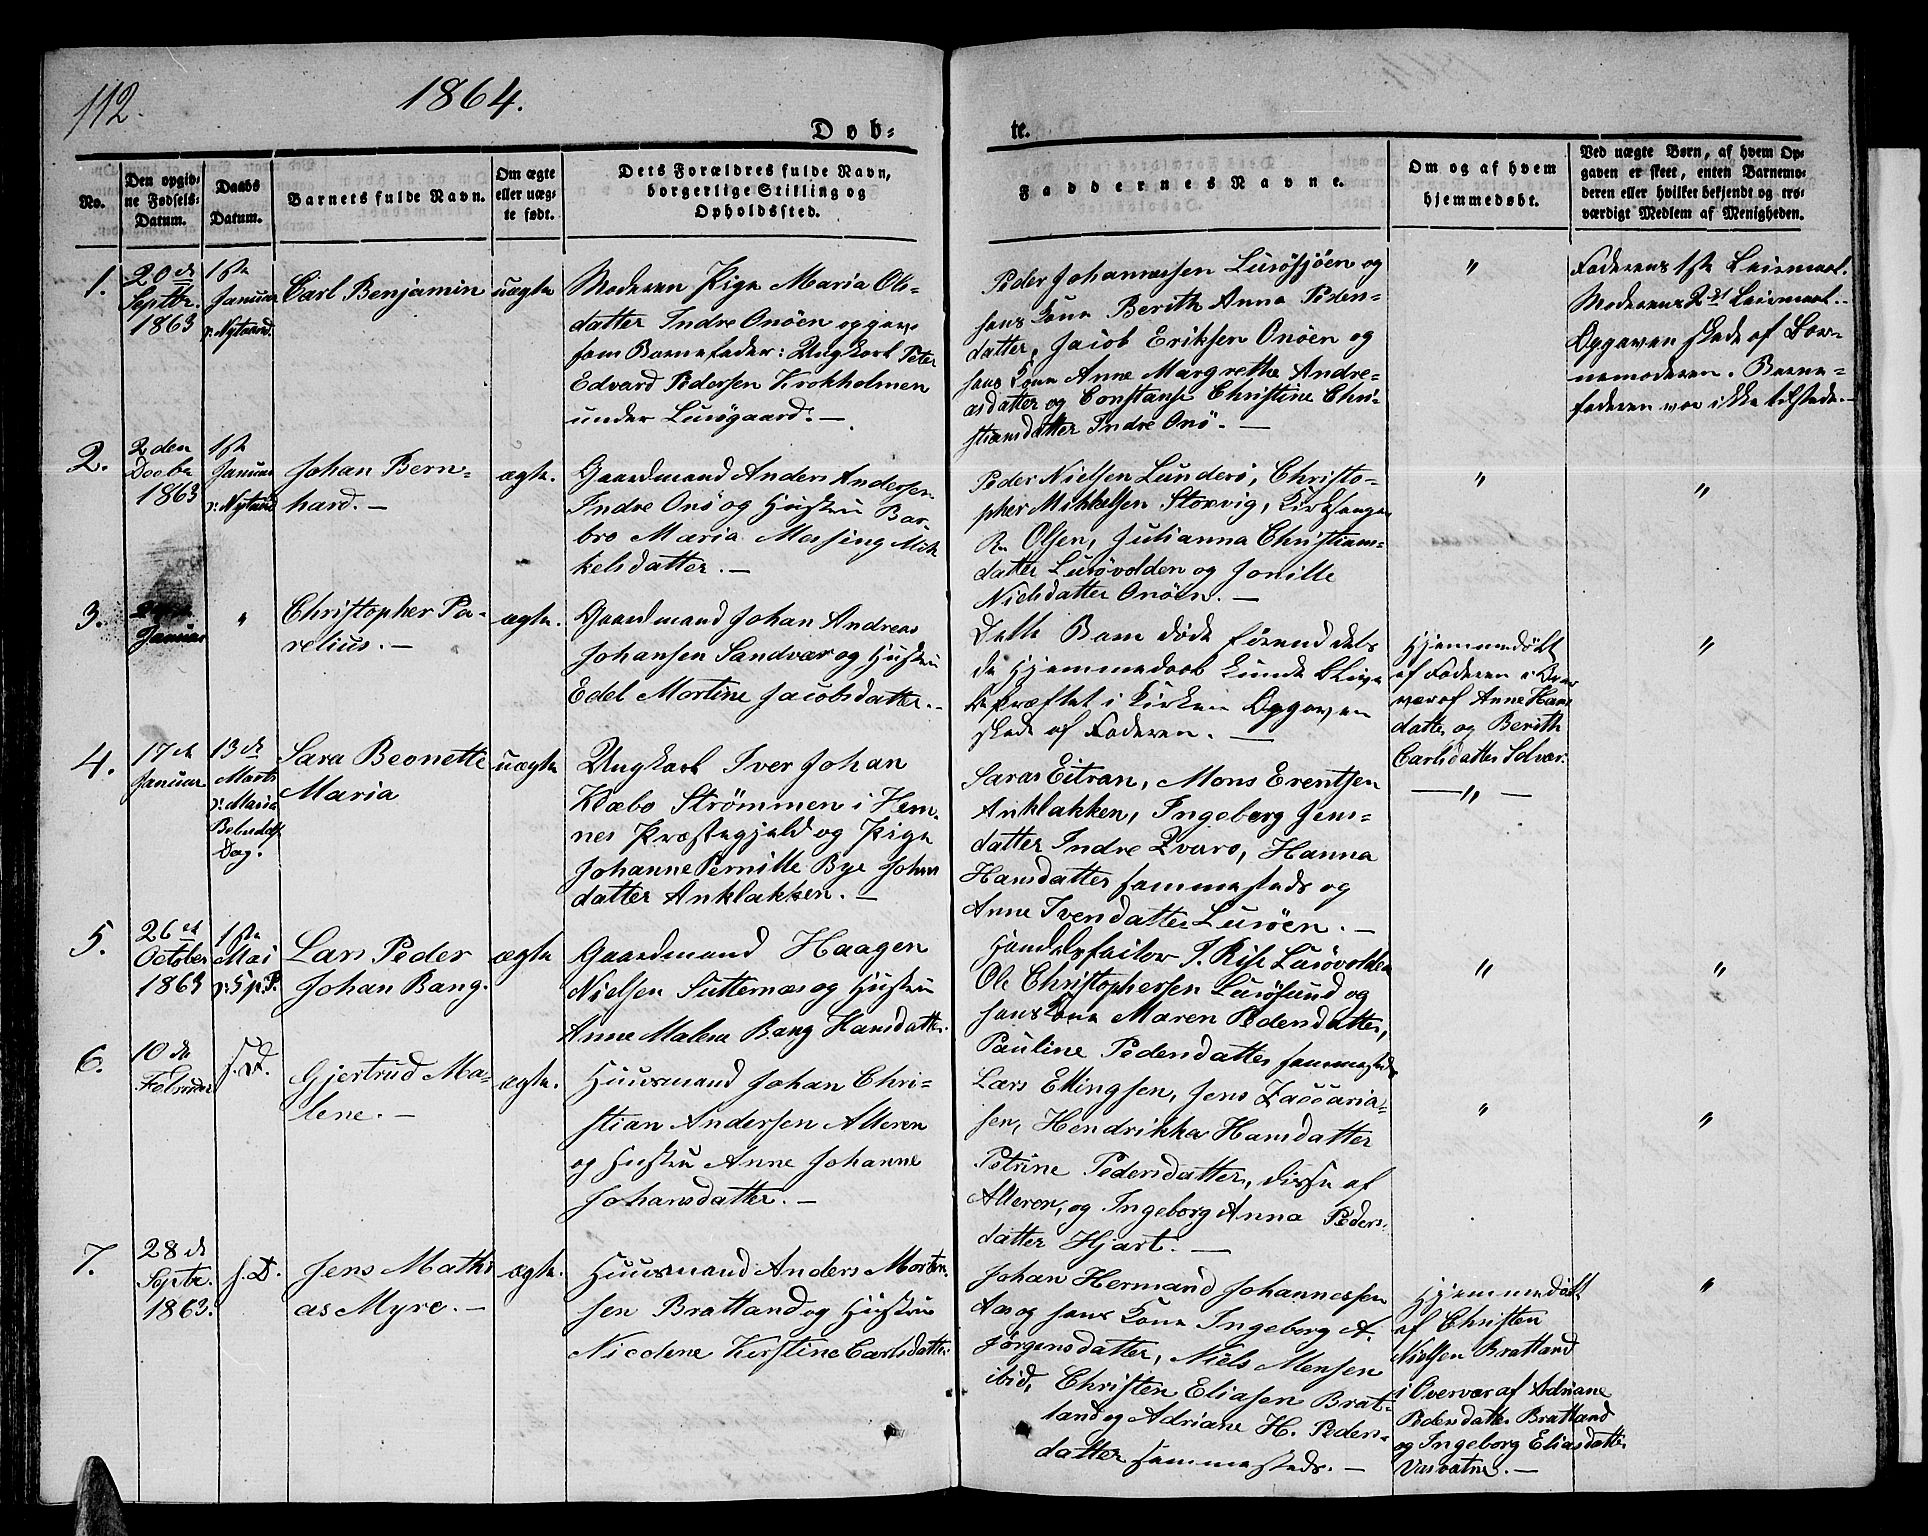 112.
1864.
Døb-
te.
No.
Den opgiv-
ne Fødsels-
Datum.
Daabs
Datum.
Barnets fulde Navn.
Om ægte
eller uæg-
te født.
Dets Forældres fulde Navn,
borgerlige Stilling og
Opholdssted.
Faddernes Navne.
Om og af hvem
hjemmedøbt.
Ved uægte Børn, af hvem Op-
gaven er skeet, enten Barnemo-
deren eller hvilket bekjendt og tro-
værdigt Medlem af Menigheden.
1.
20de
Septbr.
1863
1ste
Januar
Carl Benjamin
uægte
Moderen Pige Maria Ols-
datter Indre Onöen opgav
som Barnefader: Ungkarl Peter
Edvard Pedersen Krokholmen
under Lurögaard. —
Peder Johannessen Lurösjöen og
hans Kone Berith Anna Peders-
datter, Jacob Eriksen Onöen og
hans Kone Anne Margrethe Andre-
asdatter og Constanse Christine Chri-
stiansdatter Indre Onö. —
"
Faderens 1ste Leiermaal.
Moderens 2det Leiermaal.
Opgaven skede af Bar-
nemoderen. Barne-
faderen var ikke tilstede. —
2.
2den
Decbr
1863
1ste
Januar
Johan Bern-
hard. —
ægte.
Gaardmand Anders Andersen
Indre Onö og Hustru Bar-
bro Maria Messing Mik
kelsdatter. —
Peder Nielsen Lunderö, Christo-
pher Mikkelsen Storvig, Kirkesanger
R. Olsen, Julianna Christians-
datter Lurövolden og Jonille
Nielsdatter Onöen. —
"
"
3.
Januar
"
Christopher Pa-
relius. —
ægte.
Gaardmand Johan Andreas
Johansen Sandvær og Hustru
Edel Martine Jacobsdatter. —
Dette Barn døde førend dets
Hjemmedaab kunde blive
bekræftet i Kirken Opgaven
skede af Faderen. —
Hjemmedøbt
af Faderen i Over
vær af Anne Hans
datter og Berith
Carlsdatter Solvær.
"
4.
17de
Januar
13de
Marts
Maria
Bebudelses
Dag.
Sara Beonette
Maria
uægte
Ungkarl Iver Johan
Klæbo Strömmen i Hem-
nes Præstegjeld og Pige
Johanne Pernille Bye Johns
datter Anklakken. —
Saras Eitran, Mons Erentsen
Anklakken, Ingeborg Jens-
datter Indre Qvarö, Hanna
Hansdatter sammesteds og
Anne Iversdatter Luröen. —
— " —
5.
26de
October
1863
1ste
Mai
Lars Peder
Johan Bang.
ægte
Gaardmand Haagen
Nielsen Sutternæs og Hustru
Anne Malene Bang Hansdatter
Handelsfaktor J. Rist Lurövolden
Ole Christophersen Lurösund og
hans Kone Maren Pedersdatter,
Pauline Pedersdatter sammesteds
"
"
6.
10de
Februar
s. D.
Gjertrud Ma-
lene. —
ægte.
Huusmand Johan Chri-
stian Andersen Alteren
og Hustru Anne Johanne
Johansdatter. —
Lars Ellingsen, Jens Zaccaria-
sen, Hendrikka Hansdatter
Petrine Pedersdatter, disse af
Alteren, og Ingeborg Anna Peders-
datter Hjart. —
"
"
7.
28de
Septbr.
1863.
s. D.
Jens Mathi
as Myre. —
ægte.
Huusmand Anders Morten-
sen Bratland og Hustru
Nicoline Kirstine Carlsdatter
Johan Hermand Johannessen
Aas og hans Kone Ingeborg A.
Jørgensdatter, Niels Monsen
ibid, Christen Eliasen Brat-
land og Adriane H. Peders-
datter sammesteds. —
Hjemmedøbt
af Christen
Nielsen Bratland
i Overvær af Adriane
Pedersdatter Bratland
og Ingeborg Eliasdatter
Vasvatne. —
"